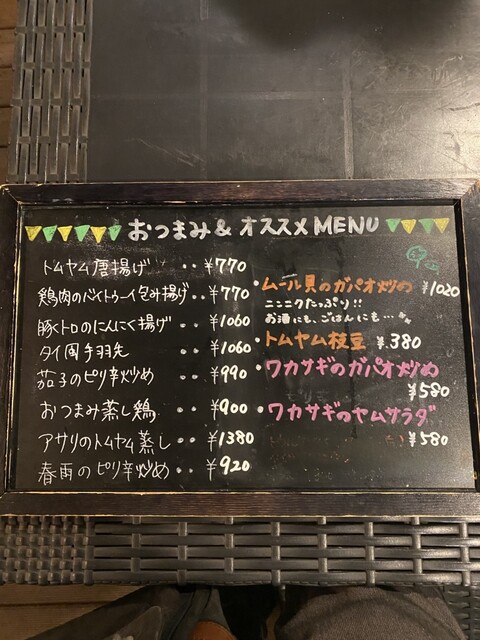 おつまみ & オススメ MENU
トムヤム唐揚げ ‥ ¥770
鶏肉のバイトゥーイ包み揚げ ‥ ¥770
豚トロのにんにく揚げ ‥ ¥1060
タイ風手羽先 ‥ ¥1060
茄子のピリ辛炒め ‥ ¥990
おつまみ蒸し鶏 ‥ ¥900
アサリのトムヤム蒸し ‥ ¥1380
春雨のピリ辛炒め ‥ ¥920
・ムール貝のガパオ炒め ¥1020
ニンニクたっぷり!!
お酒にも、ごはんにも…
・トムヤム枝豆 ¥380
・ワカサギのガパオ炒め
¥580
・ワカサギのヤムサラダ
¥580